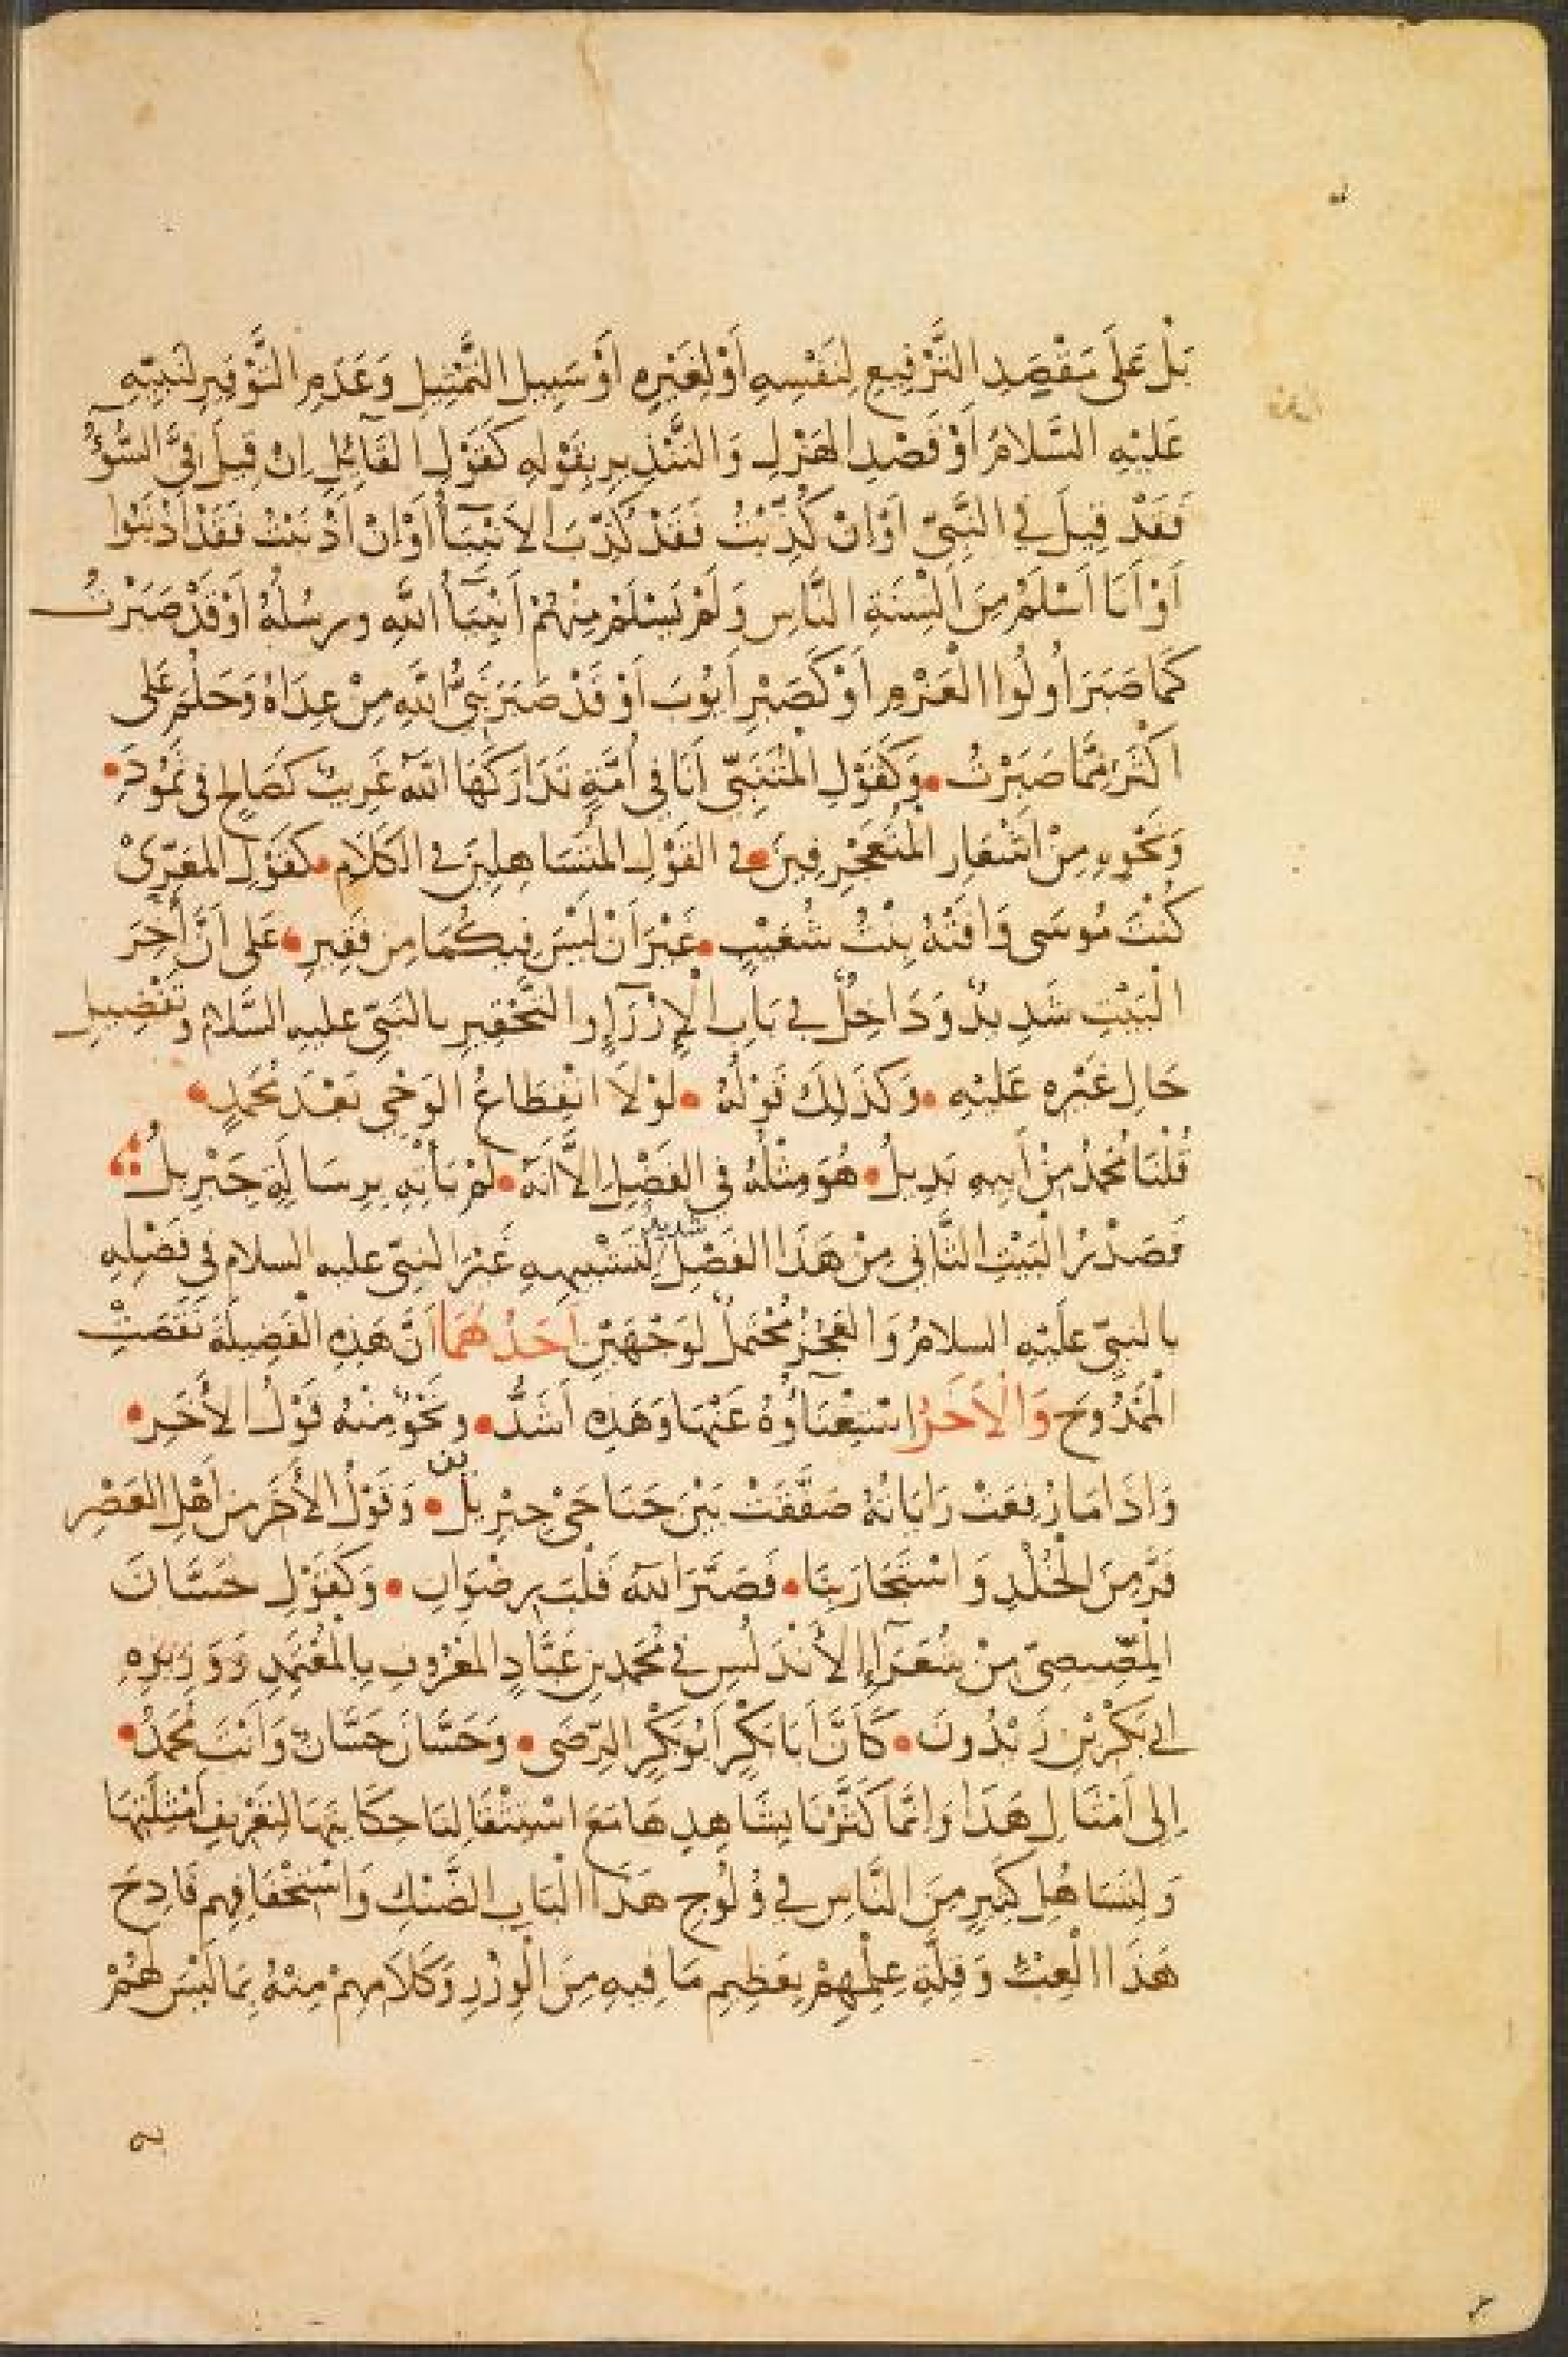 بَلْ عَلَى مَقْصِدِ التَّرْفِيعِ لِنَفْسِهِ أَوْ لِغَيْرِهِ أَوْ سَبِيلِ التَّمْثِيلِ وَعَدَمِ التَّوْقِيرِ لِنَبِيِّهِ
عَلَيْهِ السَّلَامُ أَوْ قَصْدِ الهَزْلِ وَالتَّنْذِيرِ بِقَوْلِهِ كَقَوْلِ القَآئِلِ إِنْ قِيلَ فِيَّ السُّوْءُ
فَقَدْ قِيلَ فِي النَّبِيِّ أَوْ إِنْ كُذِّبْتُ فَقَدْ كُذِّبَ الأَنْبِيَآءُ أَوْ إِنْ أَذْنَبْتُ فَقَدْ أَذْنَبُوا
أَوْ أَنَا أَسْلَمُ مِنَ أَلْسِنَةِ النَّاسِ وَلَمْ يَسْلَمْ مِنْهُمْ أَنْبِيَآءُ اللهِ ورسُلُهُ أَوْ قَدْ صَبَرْتُ
كَمَا صَبَرَ أُولُوا العَزْمِ أَوْ كَصَبْرِ أَيُّوبَ أَوْ قَدْ صَبَرَ نَبِيُّ اللهِ مِنْ عِدَاهُ وَحَلُمَ عَلَى
أَكْثَرَ مِمَّا صَبَرْتُ • وَكَقَوْلِ الْمُتَنَبِّي أَنَا فِي أُمَّةٍ تَدَارَكَهَا اللهُ غَرِيبٌ كَصَالِحٍ فِي ثَمُودَ •
وَنَحْوِهِ مِنْ أَشْعَارِ الْمُتَعَجْرِفِينَ فِي القَوْلِ المُتَسَاهِلِينَ فِي الكَلَامِ • كَقَوْلِ المَعَرِّيْ
كُنْتَ مُوسَى وَافَتْهُ بِنْتُ شُعَيْبٍ • غَيْرَ أَنْ لَيْسَ فِيكُمَا مِن فَقِيرِ • عَلَى أَنَّ آخِرَ
الْبَيْتِ شَدِيدٌ وَدَاخِلٌ فِي بَابِ الْإِزْرَآءِ والتَّحْقِيرِ بالنَّبِيِّ عليهِ السَّلام وتَفْضِيلِ
حَالِ غَيْرِهِ عَلَيْهِ • وَكَذَلِكَ قَوْلُهُ • لَوْلَا انْقِطَاعُ الوَحْيِ بَعْدَ مُحَمَّدٍ •
قُلْنَا مُحَمَّدُ مِنْ أَبِيهِ بَدِيلُ • هُوَ مِثْلُهُ فِي الفَضْلِ إِلَّا أَنَّهُ • لَمْ يَأْتِهِ بِرِسَالَةٍ جِبْرِيلُ
فَصَدْرُ الْبَيْتِ الثَّانِي مِنْ هَذَا الفَصْلِ شديد لِتَشْبِيهِهِ غَيْرَ النبيِّ عليه السلام فِي فَضْلِهِ
بالنبيِّ عَلَيْهِ السلامُ وَالعَجُزُ مُحْتَمِلٌ لوَجْهَيْنِ أَحَدُهُمَا أَنَّ هَذِهِ الْفَضِيلَةَ نَقَصَتْ
الْمَمْدُوحَ وَالْآخَرُ اسْتِغْنَآؤُهُ عَنْهَا وَهَذِهِ أَشَدُّ • ونَحْوٌ مِنْهُ قَوْلُ الأَخَرِ •
وَإِذَا مَا رُفِعَتْ رَايَاتُهُ صَفَّقَتْ بَيْنَ جَنَاحَيْ جِبْرِيلْ ين • وَقَوْلُ الأَخَرِ مِنْ أَهْلِ العَصْرِ
فَرَّ مِنَ الْخُلْدِ وَاسْتَجَارَ بِنَا • فَصَبَّرَ اللهُ قَلْبَ رِضْوَانِ • وَكَقَوْلِ حَسَّانَ
المِصِّيصِيِّ مِنْ شُعَرَآءِ الأَنْدَلُسِ فِي مُحَمَّدِ بْنِ عَبَّادٍ المَعْرُوفِ بِالْمُعْتَمِدِ وَوَزِيرِهِ
أبي بَكْرِ بْنِ زَيْدُونَ • كَأَنَّ أَبَا بَكْرٍ أَبُو بَكْرٍ الرِّضَى • وَحَسَّانَ حَسَّانٌ وَأَنْتَ مُحَمَّدُ •
إِلَى أَمْثَالِ هَذَا وَإِنَّمَا كَثَّرْنَا بِشَاهِدِهَا مَعَ اسْتِثْقَالِنَا حِكَايَتَهَا لِتَعْرِيفِ أَمْثِلَتِهَا
وَلِتَسَاهُلِ كَثِيرٍ مِنَ النَّاسِ فِي وُلُوجِ هَذَا الْبَابِ الضَّنْكِ وَاسْتِخْفَافِهِم فَادِحَ
هَذَا الْعِبْءِ وَقِلَّةِ عِلْمِهِمْ بِعَظِيمِ مَا فِيهِ مِنَ الْوِزْرِ وَكَلَامِهِمْ مِنْهُ بِمَا لَيْسَ لَهُمْ